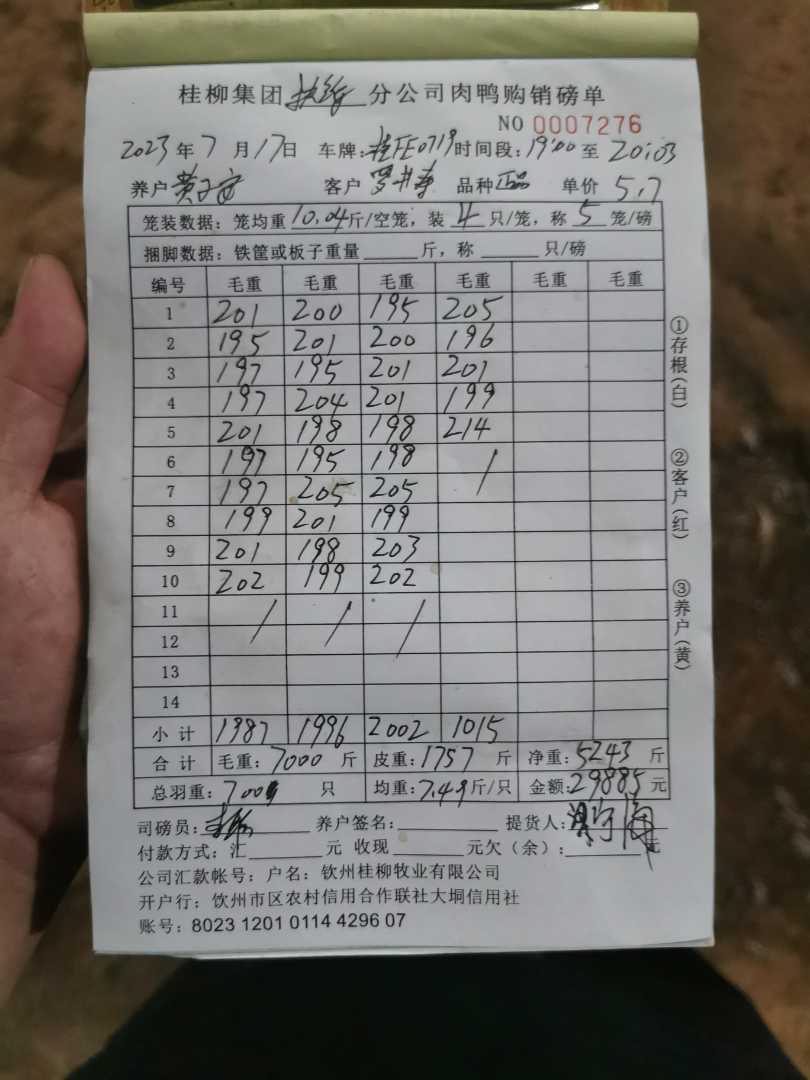 桂柳集团 分公司肉鸭购销磅单
NO 0007276
2023年7月17日 车牌:桂FE0719 时间段:19:00至20:03
养户 客户 品种正品 单价5.7
笼装数据:笼均重10.04斤/空笼,装4只/笼,称5笼/磅
捆脚数据:铁筐或板子重量 斤,称 只/磅
编号 毛重 毛重 毛重 毛重 毛重 毛重
1 201 200 195 205
2 195 201 200 196
3 197 195 201 201
4 197 204 201 199
5 201 198 198 214
6 197 195 198 /
7 197 205 205
8 199 201 199
9 201 198 203
10 202 199 202
11 / / /
12
13
14
小计 1987 1996 2002 1015
合计 毛重:7000斤 皮重:1757斤 净重:5243斤
总羽重: 只 均重:7.49斤/只 金额:29885元
司磅员: 养户签名: 提货人:
付款方式:汇 元 收现 元欠(余): 元
公司汇款帐号:户名:钦州桂柳牧业有限公司
开户行:饮州市区农村信用合作联社大垌信用社
账号:8023 1201 0114 4296 07
①存根(白)
②客户(红)
③养户(黄)